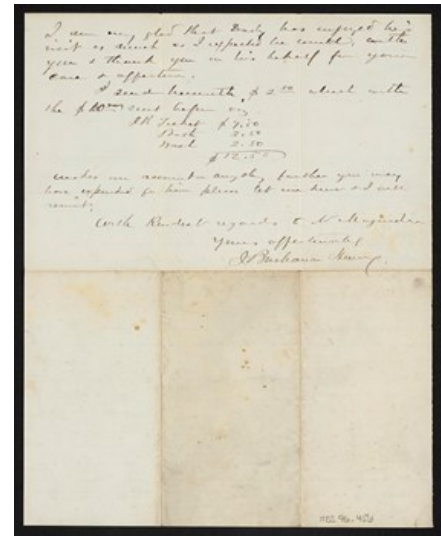 I am very glad that has enjoyed his
visit as much as I expected he would, with
you & thank you in his behalf for your
care & affection.
I send herewith $2.50 which with
the $10.00 sent before
RR Ticket $7.50
2.50
Wash 2.50
$12.50
makes our account anything further you may
have expended for him please let me know & I will
remit.
With Kindest regards to
Yours affectionately
J Buchanan Henry